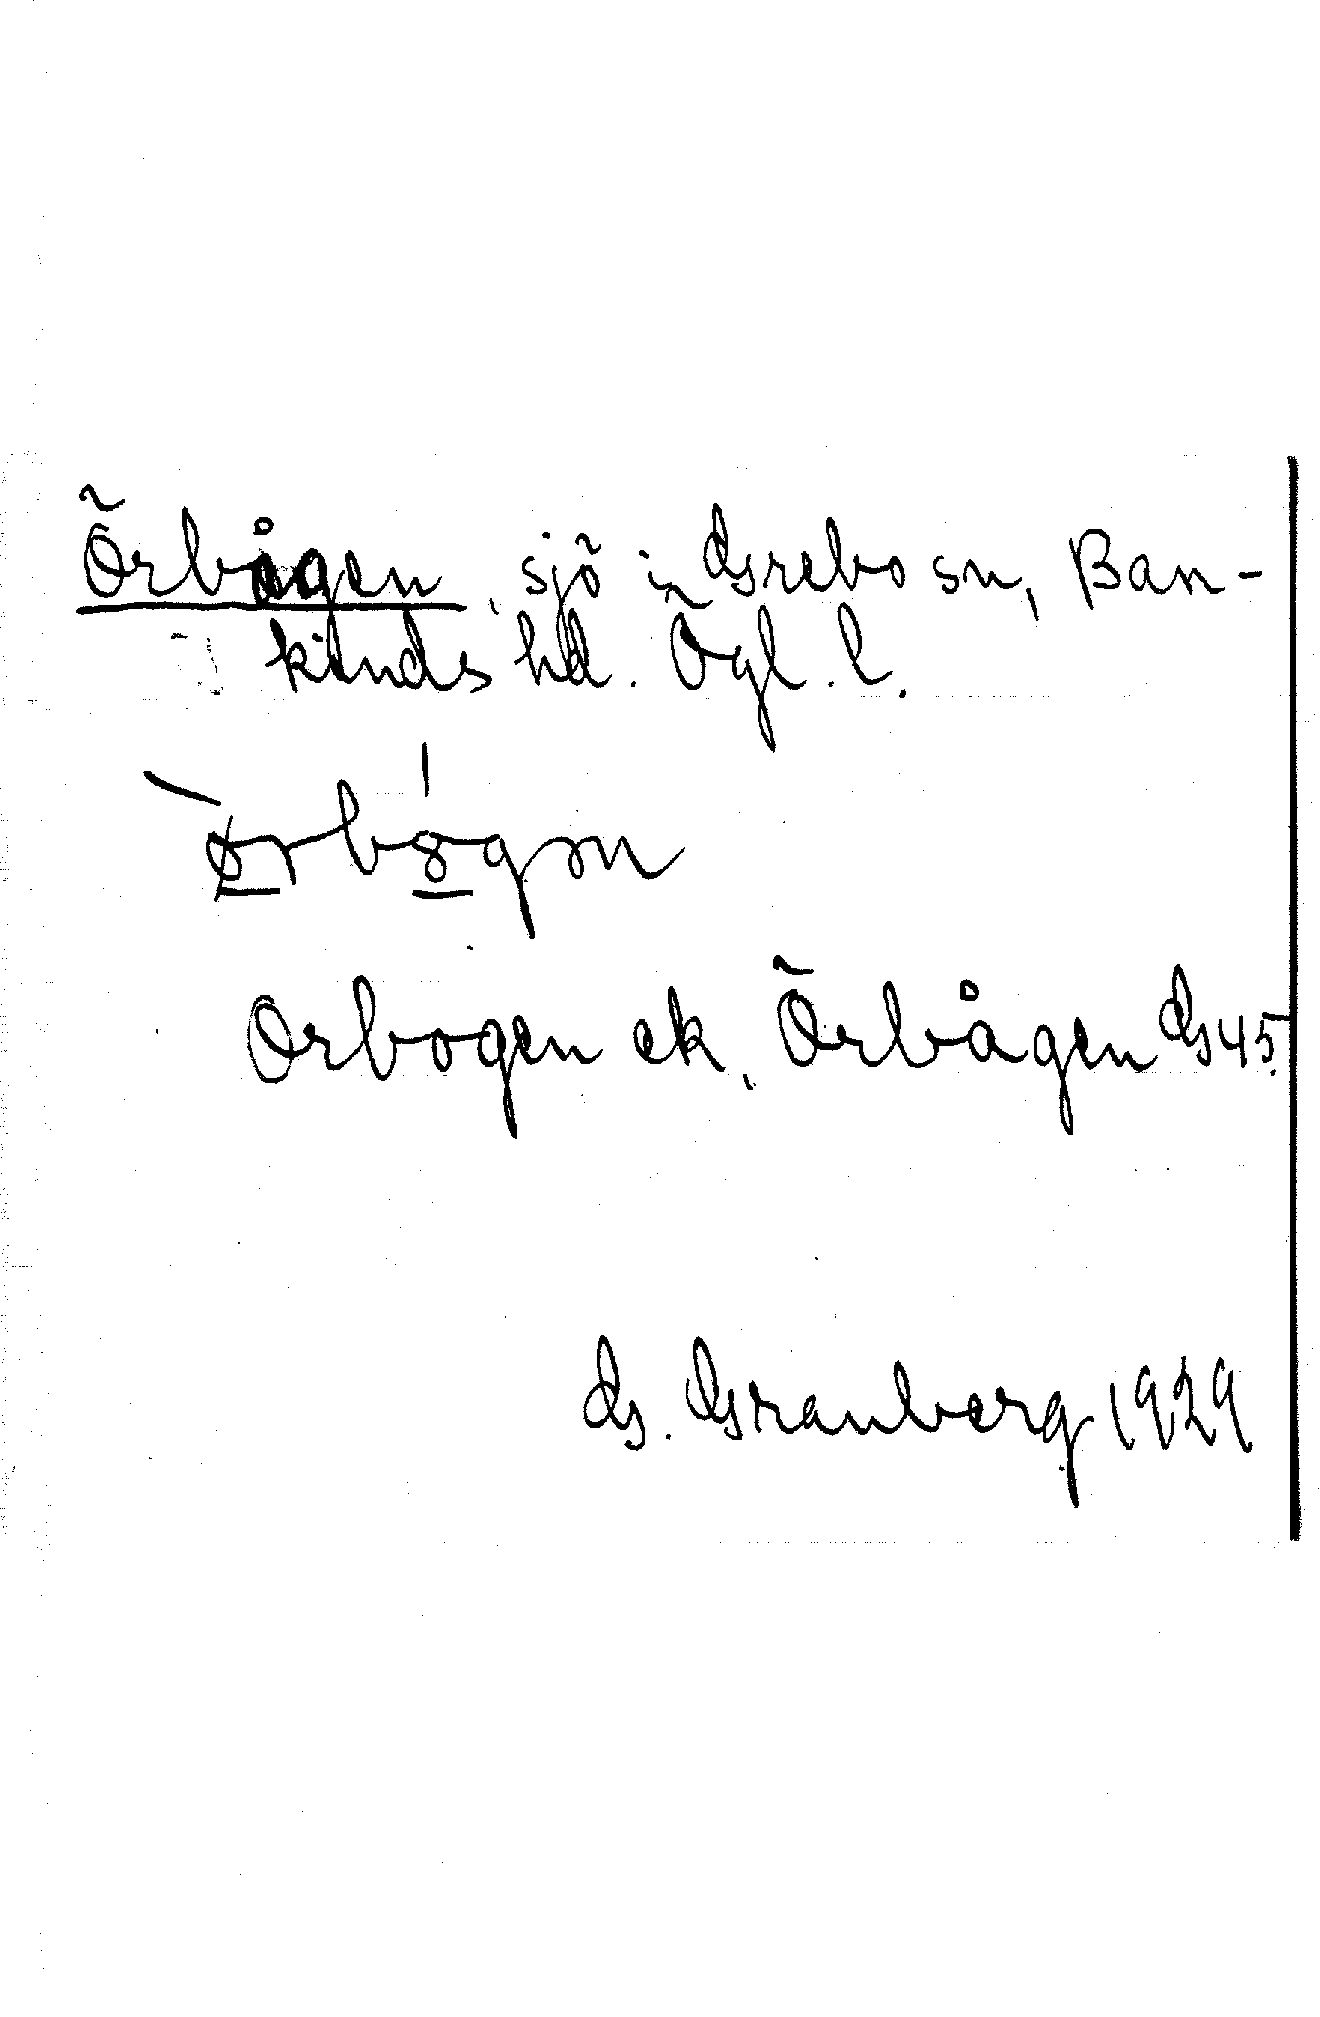 Örbågen, sjö i Grebo sn, Ban-
kinds hd. Ögl. l.
ø̀rbógən
Orbogen ek, Örbågen Gs 45.
G. Granberg 1929